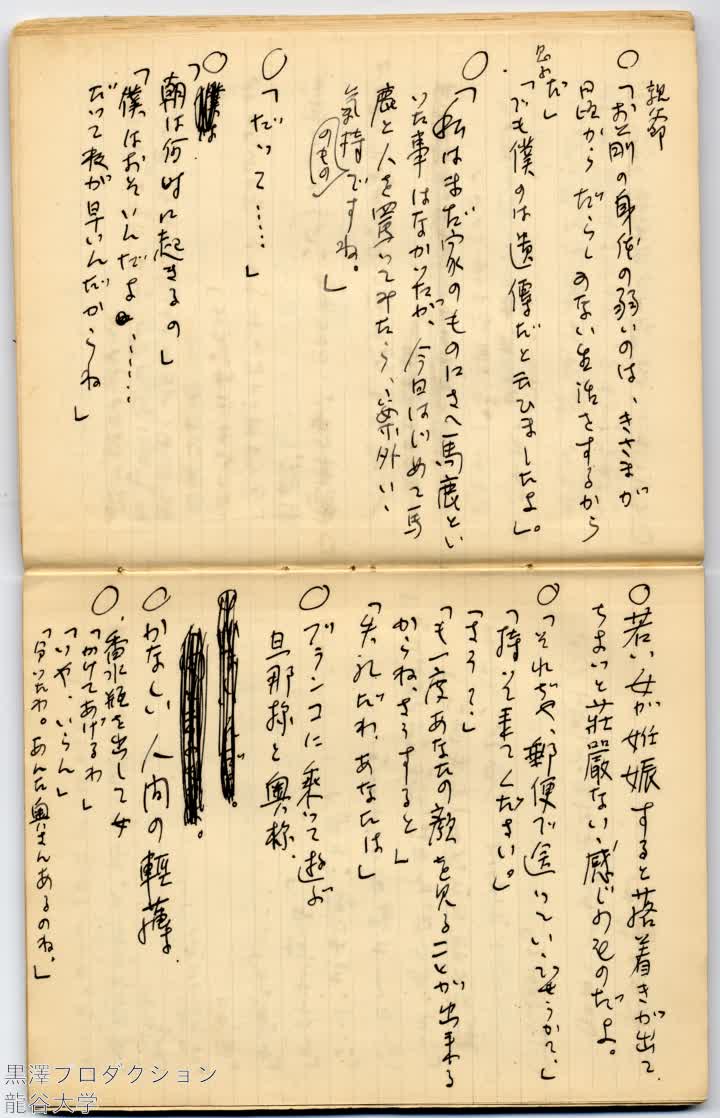 親爺
○「お前の身体の弱いのは、きさまが
日頃からだらしのない生活をするから
だ」
「でも僕のは遺傳だと云ひましたよ」。
○「私はまだ家のものにさへ馬鹿とい
いた事はなかつたが、今日はじめて馬
鹿と人を罵つてみたら、案外いゝ
気持
のもの
ですね。」
○「だつて……」
○
朝は何時に起きるの」
「僕はおそいんだよ……
だつて夜が早いんだからね」
○若い女が妊娠すると落着きが出て
ちよいと荘嚴な、感じのものだよ。
○「それぢや、郵便で送つていゝでせうかて」
「持つて来てください。」
「さう?」
「も一度あなたの顔を見ることが出来る
からね、さうすると」
「失礼だわ、あなたは」
○ブランコに乗つて遊ぶ
旦那様と奥様.
○かなしい人間の輕薄さ.
○香水瓶を出して女
「かけてあげるわ」
「いや、いらん」
「分つたわ。あんた奥さんあるのね。」
黒澤プロダクション
龍谷大学